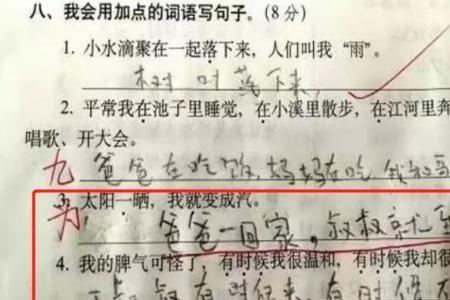 八、我会用加点的词语写句子。(8分)
1. 小水滴聚在一起落下来，人们叫我“雨”。
树叶落下来，
2. 平常我在池子里睡觉，在小溪里散步，在江河里奔
唱歌、开大会。
九 爸爸在吃饭，妈妈在吃 我和哥
3. 太阳一晒，我就变成汽。
为 爸爸一回家，叔叔就
4. 我的脾气可怪了，有时候我很温和，有时候我却很
叔叔有时候来，有时候不